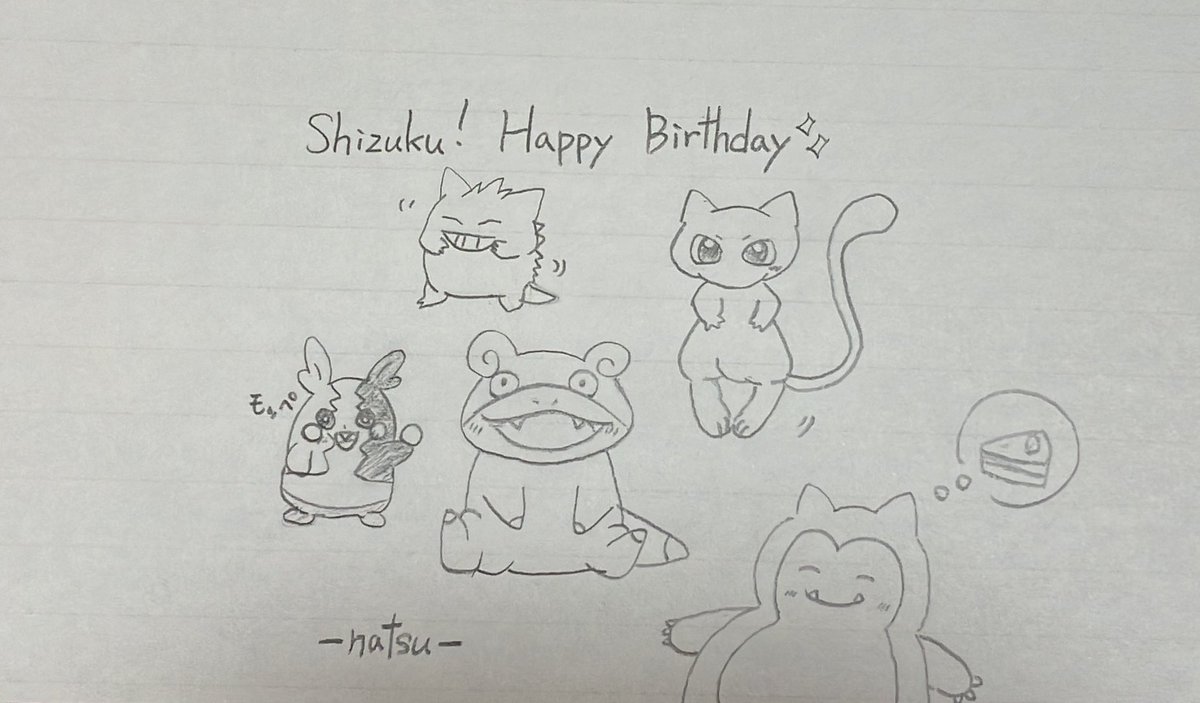 Shizuku! Happy Birthday
モルペ
-natsu-